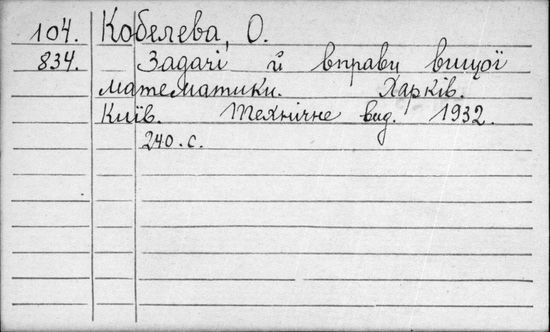 104. Кобелева, О.
834. Задачі й вправи вищої
математики. Харків.
Київ. Технічне вид. 1932.
240. с.